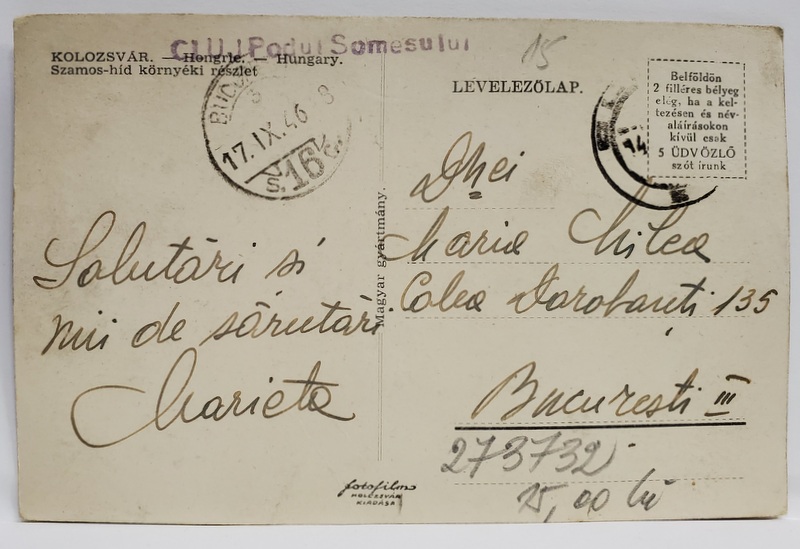 CLUJ Podul Somesului
KOLOZSVÁR. — Hongrie. — Hungary.
Szamos-híd környéki részlet
15
LEVELEZŐLAP.
Belföldön
2 filléres bélyeg
elég, ha a kel-
tezésen és név-
aláírásokon
kívül csak
5 ÜDVÖZLŐ
szót írunk
17. IX. 46
16
14
Salutări si
mii de sărutări
Marieta
Magyar gyártmány.
Dnei
Maria Milea
Calea Dorobanți 135
Bucuresti III
273732
15,00 lei
fotofilm
KOLOZSVÁR
KIADÁSA